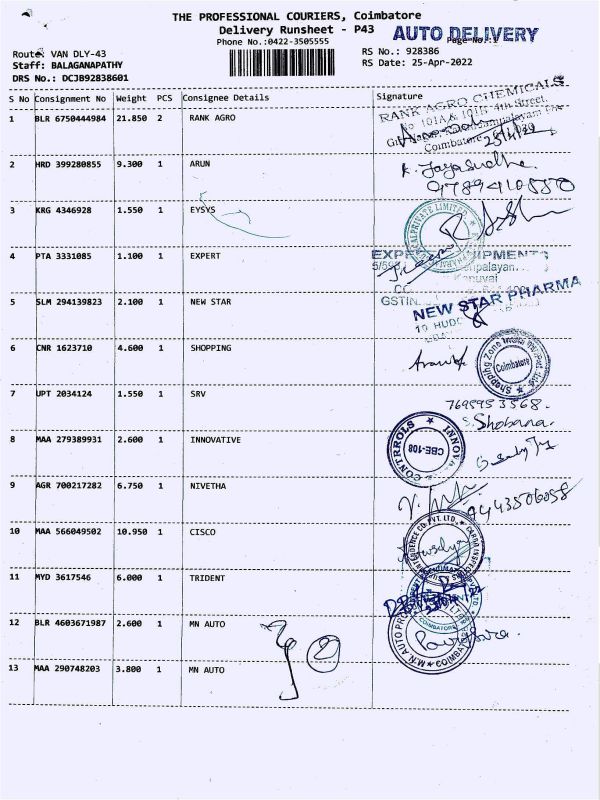 THE PROFESSIONAL COURIERS, Coimbatore
Delivery Runsheet - P43
AUTO DELIVERY
Phone No.:0422-3505555
Page No.:1
Route: VAN DLY-43
RS No.: 928386
Staff: BALAGANAPATHY
RS Date: 25-Apr-2022
DRS No.: DCJB92838601
S No Consignment No Weight PCS Consignee Details Signature
1 BLR 6750444984 21.850 2 RANK AGRO
RANK AGRO CHEMICALS
No 101A & 101B 4th Street
Coimbatore
25/4/22
2 HRD 399280855 9.300 1 ARUN
K. Jayasudha
9789410580
3 KRG 4346928 1.550 1 EYSYS
4 PTA 3331085 1.100 1 EXPERT
GSTIN
5 SLM 294139823 2.100 1 NEW STAR
NEW STAR PHARMA
6 CNR 1623710 4.600 1 SHOPPING
Shopping Zone India
Coimbatore
7 UPT 2034124 1.550 1 SRV
7695953568.
S. Shobana.
8 MAA 279389931 2.600 1 INNOVATIVE
CBE-108
9 AGR 700217282 6.750 1 NIVETHA
9443506058
10 MAA 566049502 10.950 1 CISCO
11 MYD 3617546 6.000 1 TRIDENT
12 BLR 4603671987 2.600 1 MN AUTO
COIMBATORE
13 MAA 290748203 3.800 1 MN AUTO